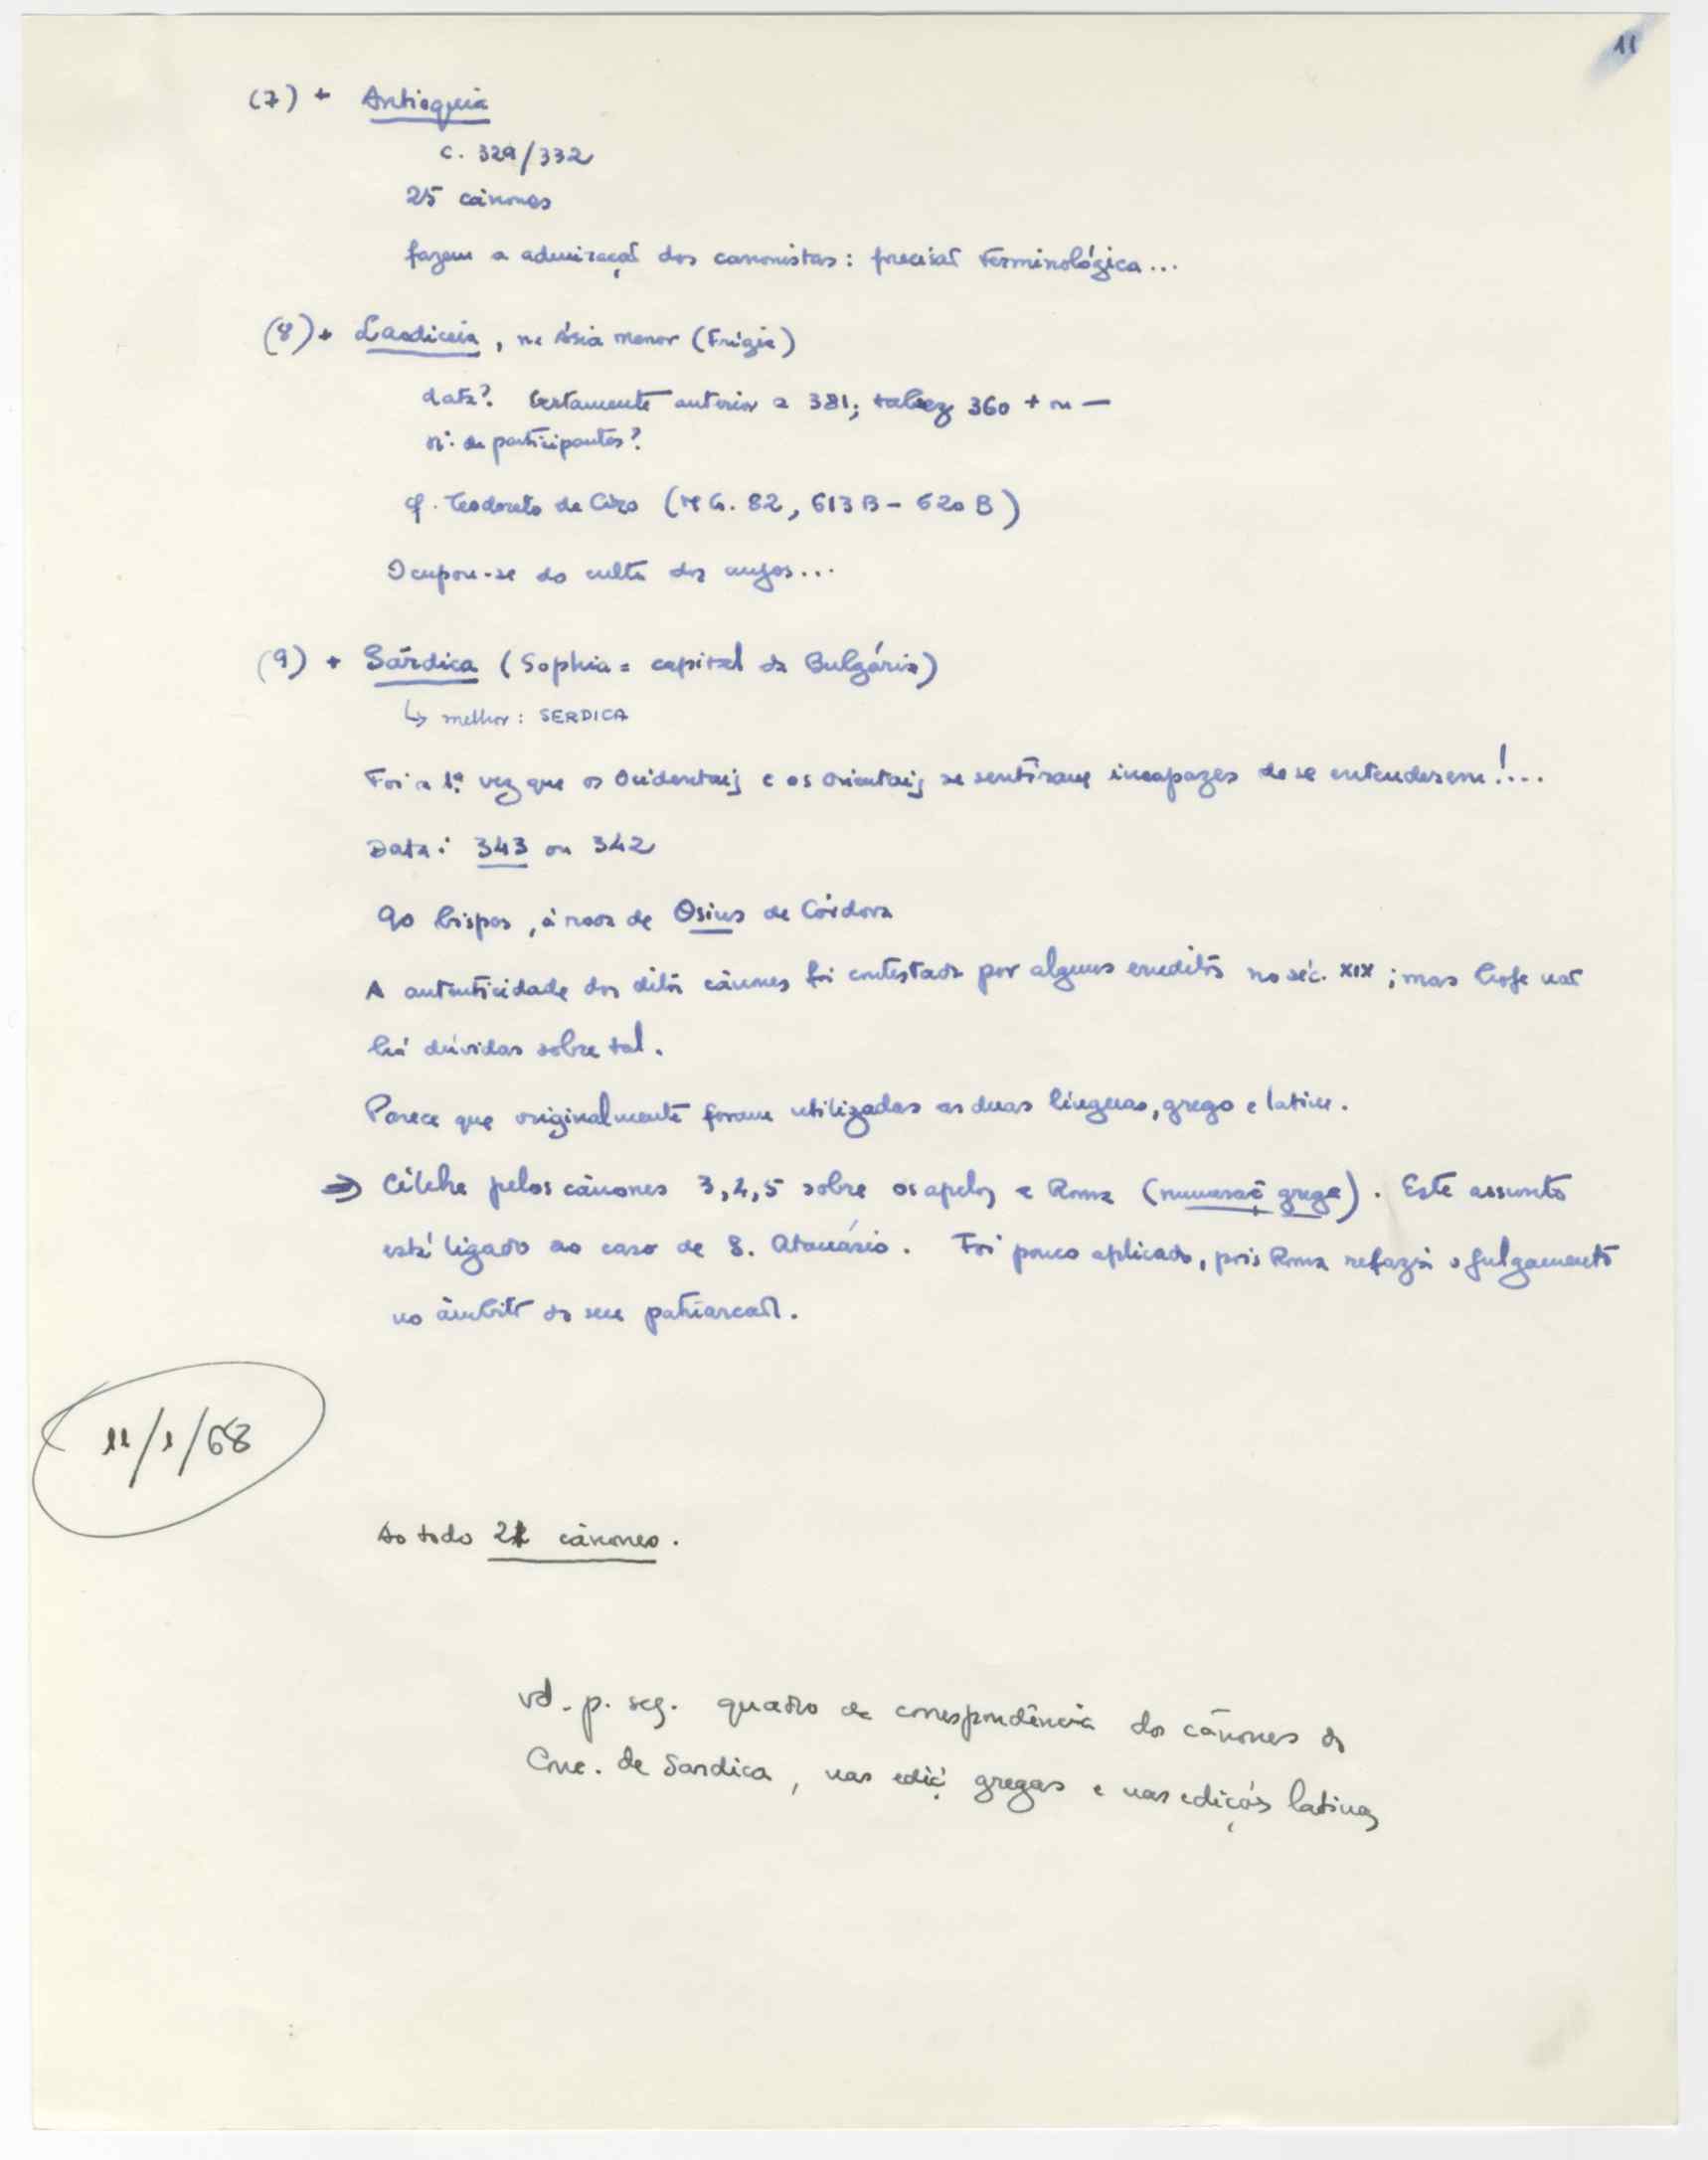 11
(7) + Antioquia
c. 329/332
25 cânones
fazem a admiração dos canonistas: precisão terminológica...
(8) + Laodiceia, na Ásia Menor (Frígia)
data? Certamente anterior a 381; talvez 360 + ou —
nº. de participantes?
cf. Teodoreto de Ciro (MG. 82, 613 B - 620 B)
Ocupou-se do culto dos anjos...
(9) + Sárdica (Sophia = capital da Bulgária)
↳ melhor: SERDICA
Foi a 1ª vez que os Ocidentais e os orientais se sentiram incapazes de se entenderem!...
Data: 343 ou 342
90 bispos, à roda de Osius de Córdova
A autenticidade dos ditos cânones foi contestada por alguns eruditos no séc. XIX; mas hoje não
há dúvidas sobre tal.
Parece que originalmente foram utilizadas as duas línguas, grego e latim.
⇒ Célebre pelos cânones 3,4,5 sobre os apelos a Roma (numeração grega). Este assunto
está ligado ao caso de S. Atanásio. Foi pouco aplicado, pois Roma refazia o julgamento
no âmbito do seu patriarcado.
11/1/68
Ao todo 21 cânones.
vd. p. seg. quadro de correspondência dos cânones do
Conc. de Sardica, nas ediç. gregas e nas edições latinas